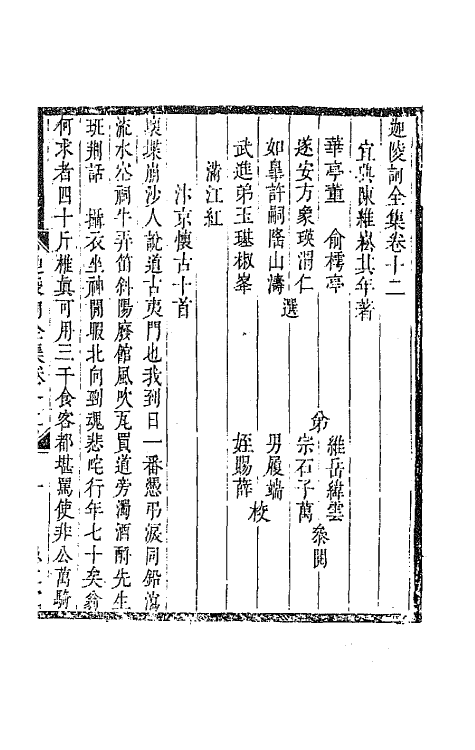 迦陵詞全集卷十二
宜興陳維崧其年著
華亭董　俞樗亭
遂安方象瑛渭仁
如臯許嗣隆山濤
武進弟玉璂椒峯
選
弟
維岳緯雲
宗石子萬
叅閱
男履端
姪賜薛
校
滿江紅
汴京懷古十首
壞堞崩沙人說道古夷門也我到日一番憑弔淚同鉛瀉
流水空祠牛弄笛斜陽廢館風吹瓦買道旁濁酒酹先生
班荊話　攝衣坐神閒暇北向剄魂悲咤行年七十矣翁
何求者四十斤椎真可用三千食客都堪罵使非公萬騎